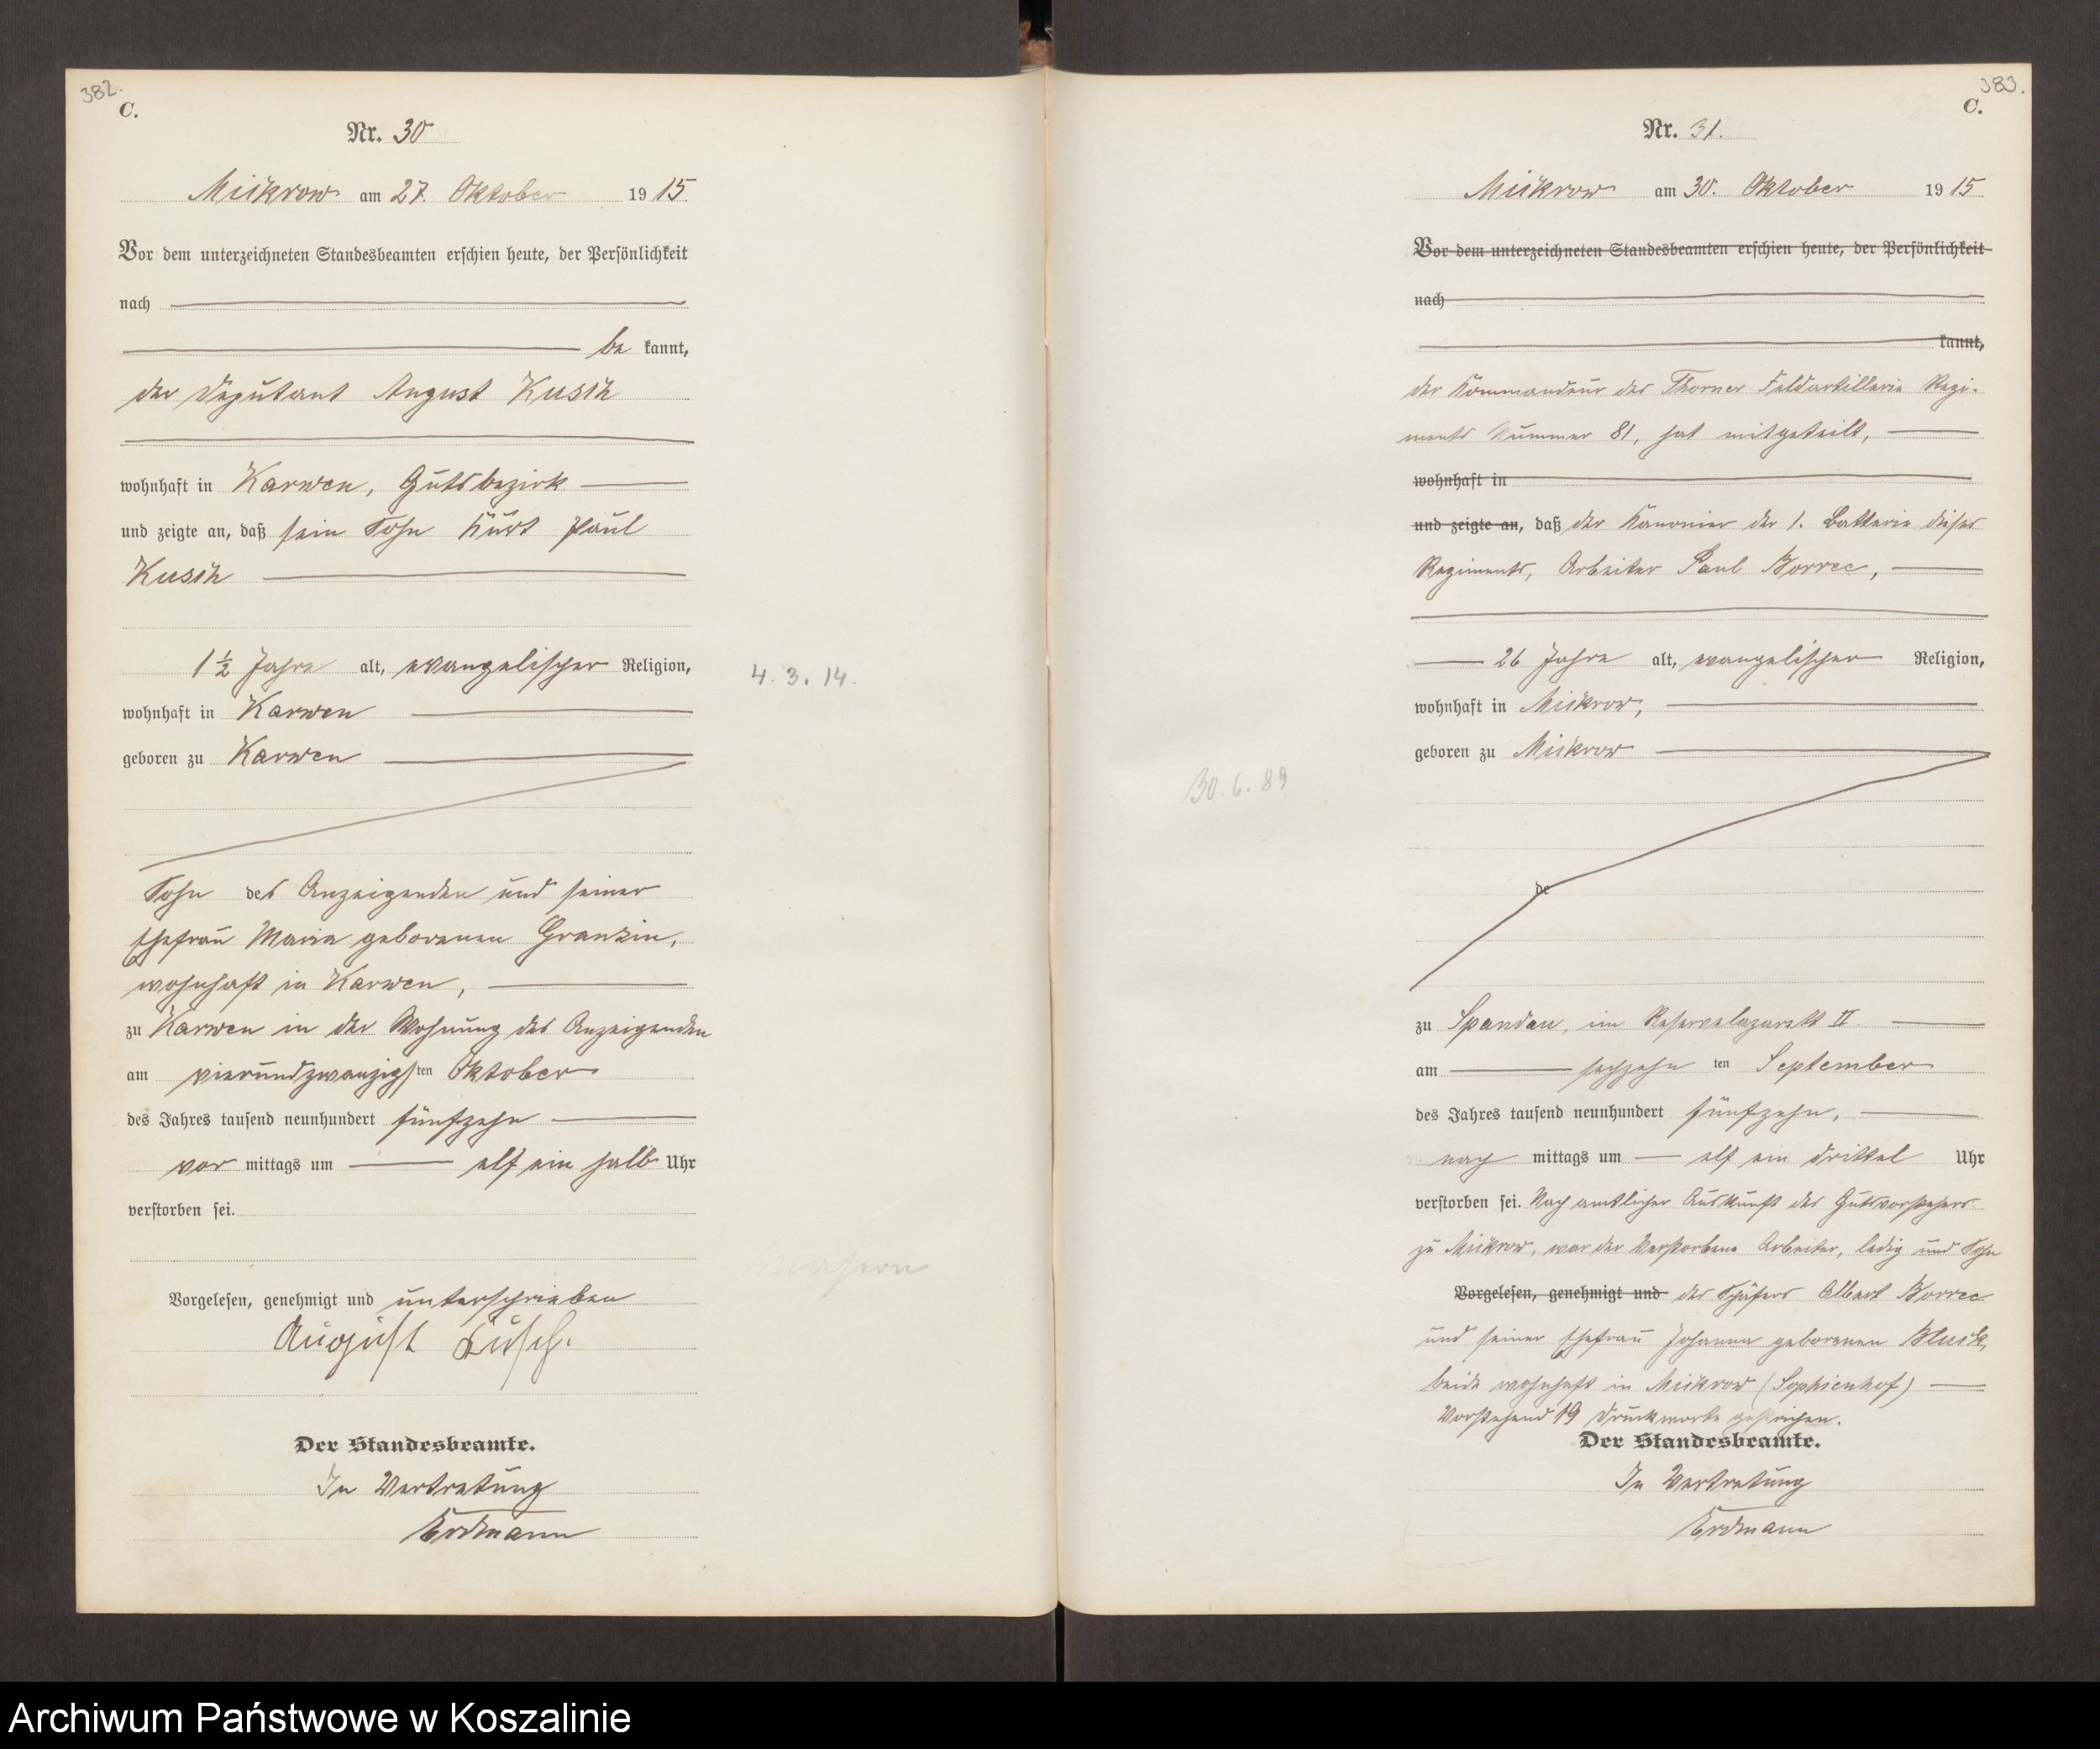 382.
C.
Nr. 30
Mickrow am 27. Oktober 1915
Vor dem unterzeichneten Standesbeamten erschien heute, der Persönlichkeit
nach
be kannt,
der Deputant August Kusch
wohnhaft in Karwen, Gutsbezirk
und zeigte an, daß sein Sohn Kurt Paul
Kusch
1½ Jahre alt, evangelischer Religion,
wohnhaft in Karwen
geboren zu Karwen
Sohn des Anzeigenden und seiner
Ehefrau Maria geborenen Granzin,
wohnhaft in Karwen,
zu Karwen in der Wohnung des Anzeigenden
am vierundzwanzigsten Oktober
des Jahres tausend neunhundert fünfzehn
vor mittags um elf ein halb Uhr
verstorben sei.
Vorgelesen, genehmigt und unterschrieben
August Kusch.
Der Standesbeamte.
In Vertretung
Erdmann
4. 3. 14.
Masern
383.
C.
Nr. 31.
Mickrow am 30. Oktober 1915
Vor dem unterzeichneten Standesbeamten erschien heute, der Persönlichkeit
nach
kannt,
der Kommandeur des Thorner Feldartillerie Regi-
ments Nummer 81, hat mitgeteilt,
wohnhaft in
und zeigte an, daß der Kanonier der 1. Batterie dieses
Regiments, Arbeiter Paul Borrec,
26 Jahre alt, evangelischer Religion,
wohnhaft in Mickrow,
geboren zu Mickrow
30. 6. 89
de
zu Spandau, im Reservelazarett II.
am sechzehn ten September
des Jahres tausend neunhundert fünfzehn,
nach mittags um elf ein drittel Uhr
verstorben sei. Nach amtlicher Auskunft des Gutsvorstehers
zu Mickrow, war der Verstorbene Arbeiter, ledig und Sohn
Vorgelesen, genehmigt und des Schäfers Albert Borrec
und seiner Ehefrau Johanna geborenen Bluck,
beide wohnhaft in Mickrow (Sophienhof)
Vorstehend 19 Druckworte gestrichen.
Der Standesbeamte.
In Vertretung
Erdmann
Archiwum Państwowe w Koszalinie